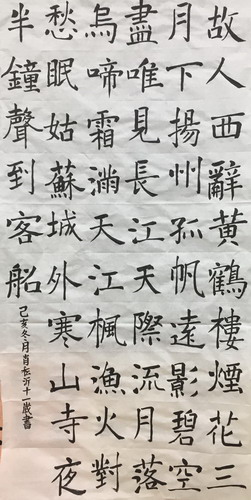 故人西辭黄鶴樓煙花三
月下揚州孤帆遠影碧空
盡唯見長江天際流月落
烏啼霜滿天江楓漁火對
愁眠姑蘇城外寒山寺夜
半鐘聲到客船
己亥冬月肖沂十一歲書